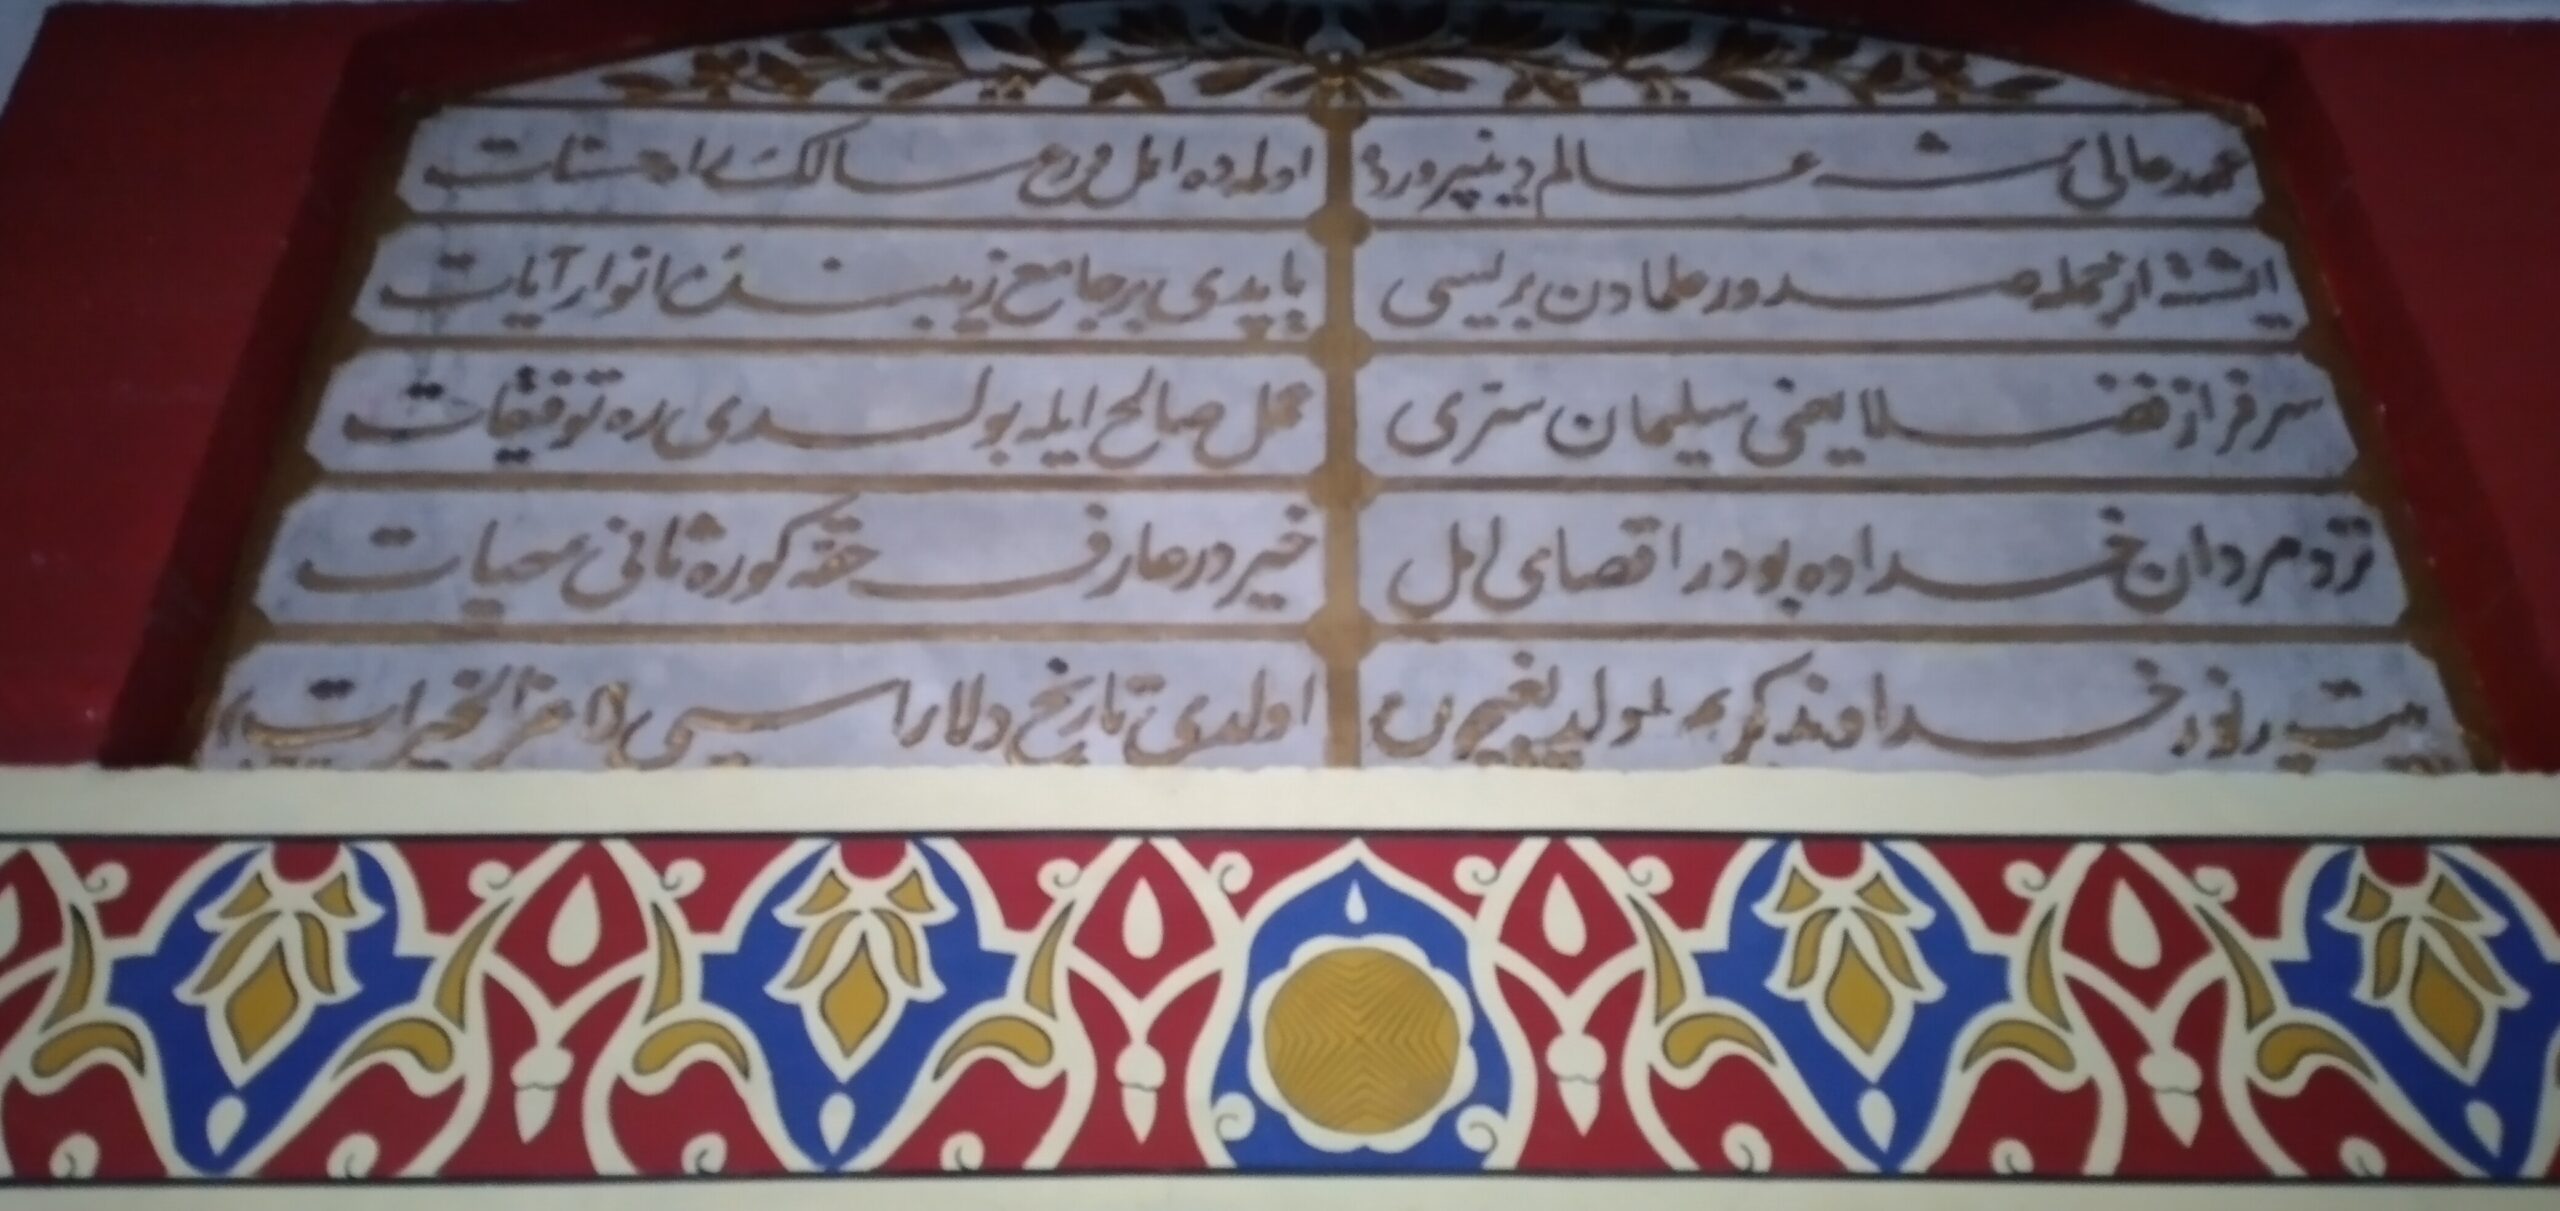 عهد عالی شه عالم دینپرورده
اولمده اهل ورع سالک راه حسنات
ایشته از جمله صدور علمادن بریسی
یاپدی بر جامع زیبنده انوار آیات
سرفراز فضلا یعنی سلیمان سری
عمل صالح ایله بولدی ره توفیقات
نزد مردان خدا ده بودر اقصای امل
خیردر عارف حقه کوره ثانی حیات
بیت پرنور خداوند کریم لم
اولدی تاریخ دلاراسی الخیرات